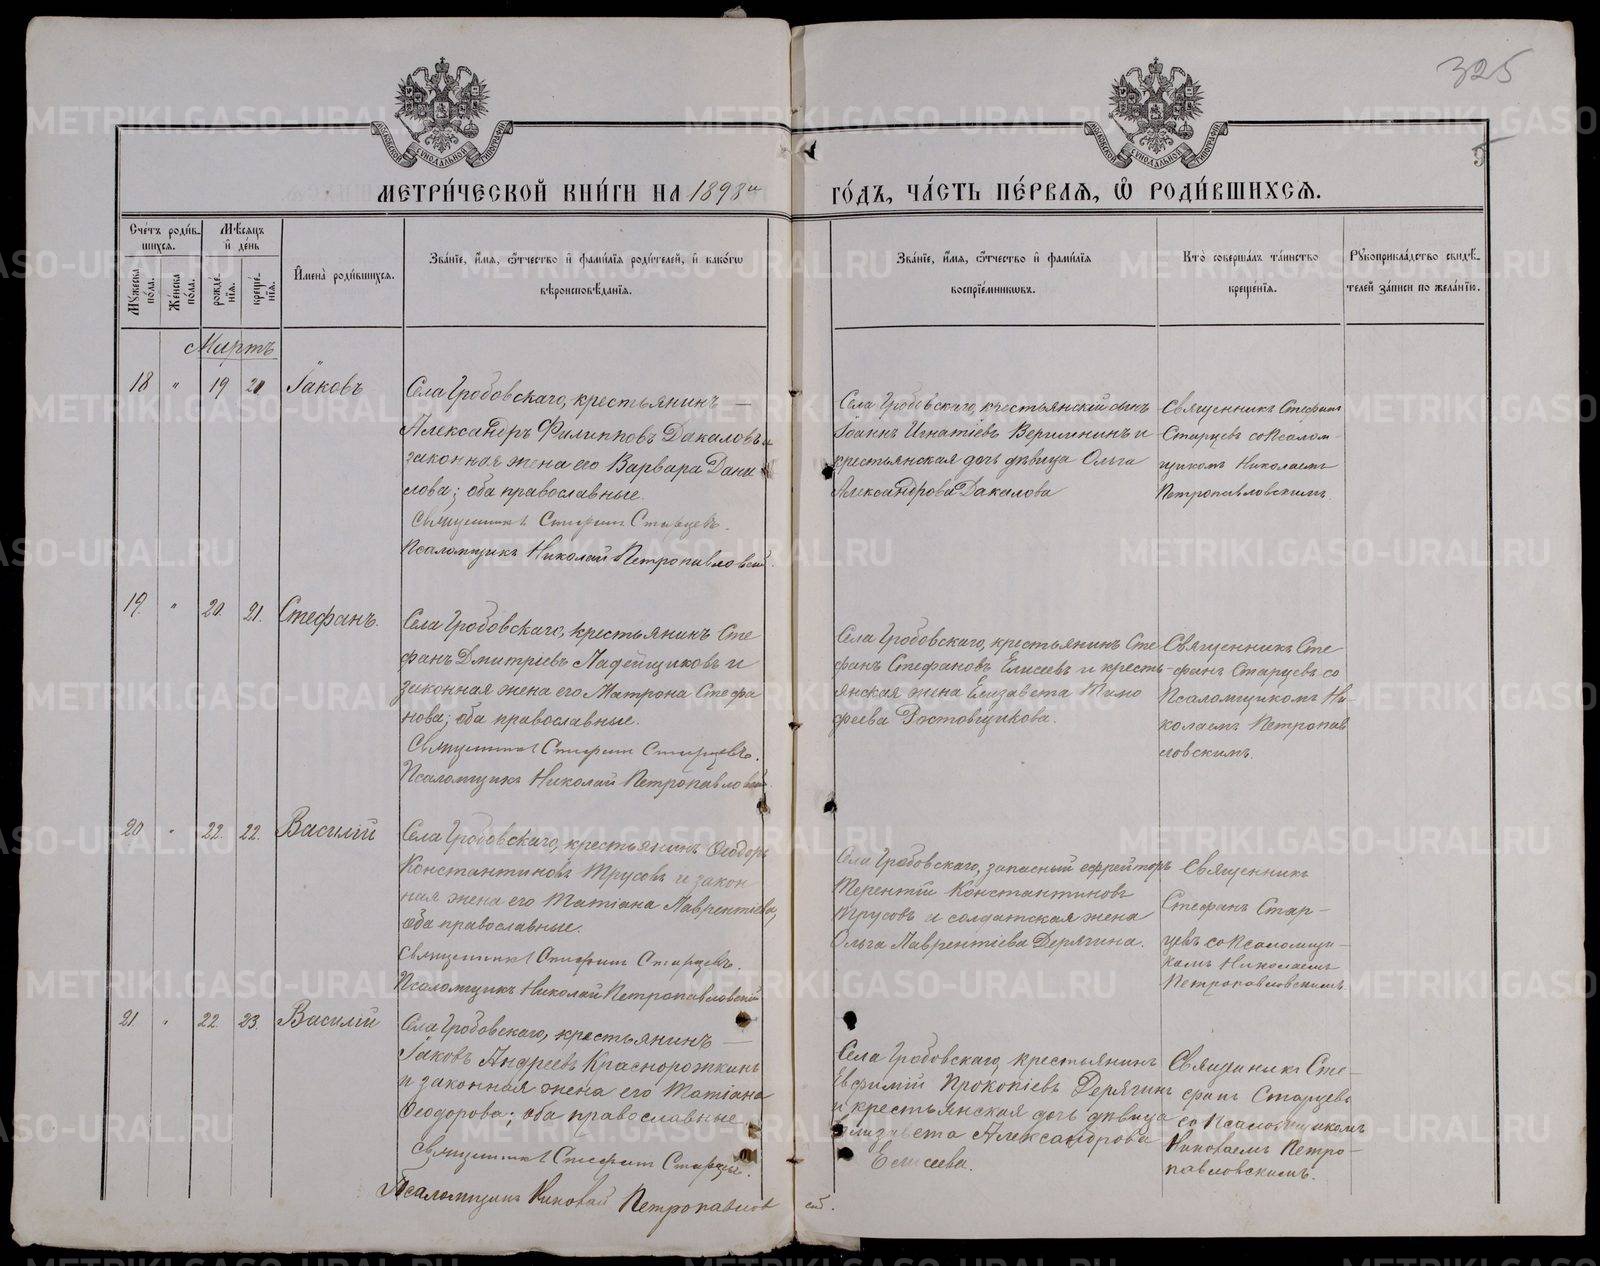 325
5
МЕТРИ́ЧЕСКОЙ КНИ́ГИ НА 1898й
ГО́ДЪ, ЧА́СТЬ ПЕ́РВАѦ, Ѽ РОДИ́ВШИХСѦ.
Сче́тъ роди́в-
шихся.
Мѣ́сяцъ
и҆ де́нь
Мꙋжеска по́ла.
Же́нска по́ла.
рожде́-
нїѧ.
креще́-
нїѧ.
И҆мена̀ роди́вшихся.
Зва́нїе, и҆́мѧ, ѻ҆́тчество и҆ фамі́лїѧ роди́телей, и҆ како́гѡ
вѣроисповѣ́данїѧ.
Зва́нїе, и҆́мѧ, ѻ҆́тчество и҆ фамі́лїѧ
воспрїе́мникѡвъ.
Кто̀ соверша́лъ та́инство
креще́нїѧ.
Рꙋкоприкла́дство свидѣ́-
телей за́писи по жела́нїю.
Мартъ
18 " 19 20 Іаковъ
Села Гробовскаго, крестьянинъ —
Александръ Филипповъ Дакаловъ и
законная жена его Варвара Дани
лова; оба православные.
Священникъ Стефанъ Старцевъ.
Псаломщикъ Николай Петропавловскій.
Села Гробовскаго, крестьянскій сынъ
Іоаннъ Игнатіевъ Вершининъ и
крестьянская дочь девица Ольга
Александрова Дакалова
Священникъ Стефанъ
Старцевъ со Псалом-
щикомъ Николаемъ
Петропавловскимъ.
19. " 20. 21. Стефанъ.
Села Гробовскаго, крестьянинъ Сте
фанъ Дмитріевъ Ладейщиковъ и
законная жена его Матрона Стефа
нова; оба православные.
Священникъ Стефанъ Старцевъ.
Псаломщикъ Николай Петропавловскій.
Села Гробовскаго, крестьянинъ Сте
фанъ Стефановъ Елисеевъ и кресть-
янская жена Елизавета Тимо
феева Ростовщикова.
Священникъ Сте-
фанъ Старцевъ со
Псаломщикомъ Ни-
колаемъ Петропав
ловскимъ.
20 " 22. 22. Василій
Села Гробовскаго, крестьянинъ Ѳеодоръ
Константиновъ Трусовъ и закон
ная жена его Татіана Лаврентіева,
оба православные.
Священникъ Стефанъ Старцевъ.
Псаломщикъ Николай Петропавловскій
Села Гробовскаго, запасный ефрейторъ
Терентій Константиновъ
Трусовъ и солдатская жена
Ольга Лаврентіева Дерягина.
Священникъ
Стефанъ Стар-
цевъ со Псаломщи-
комъ Николаемъ
Петропавловскимъ.
21. " 22. 23. Василій
Села Гробовскаго, крестьянинъ —
Іаковъ Андреевъ Краснорожкинъ
и законная жена его Татіана
Ѳеодорова; оба православные.
Священникъ Стефанъ Старцевъ.
Псаломщикъ Николай Петропавловскій.
Села Гробовскаго, крестьянинъ
Евфимій Прокопіевъ Дерягинъ
и крестьянская дочь девица
Елизавета Александрова
Елисеева.
Священникъ Сте-
фанъ Старцевъ
со Псаломщикомъ
Николаемъ Петро-
павловскимъ.
METRIKI.GASO-URAL.RU